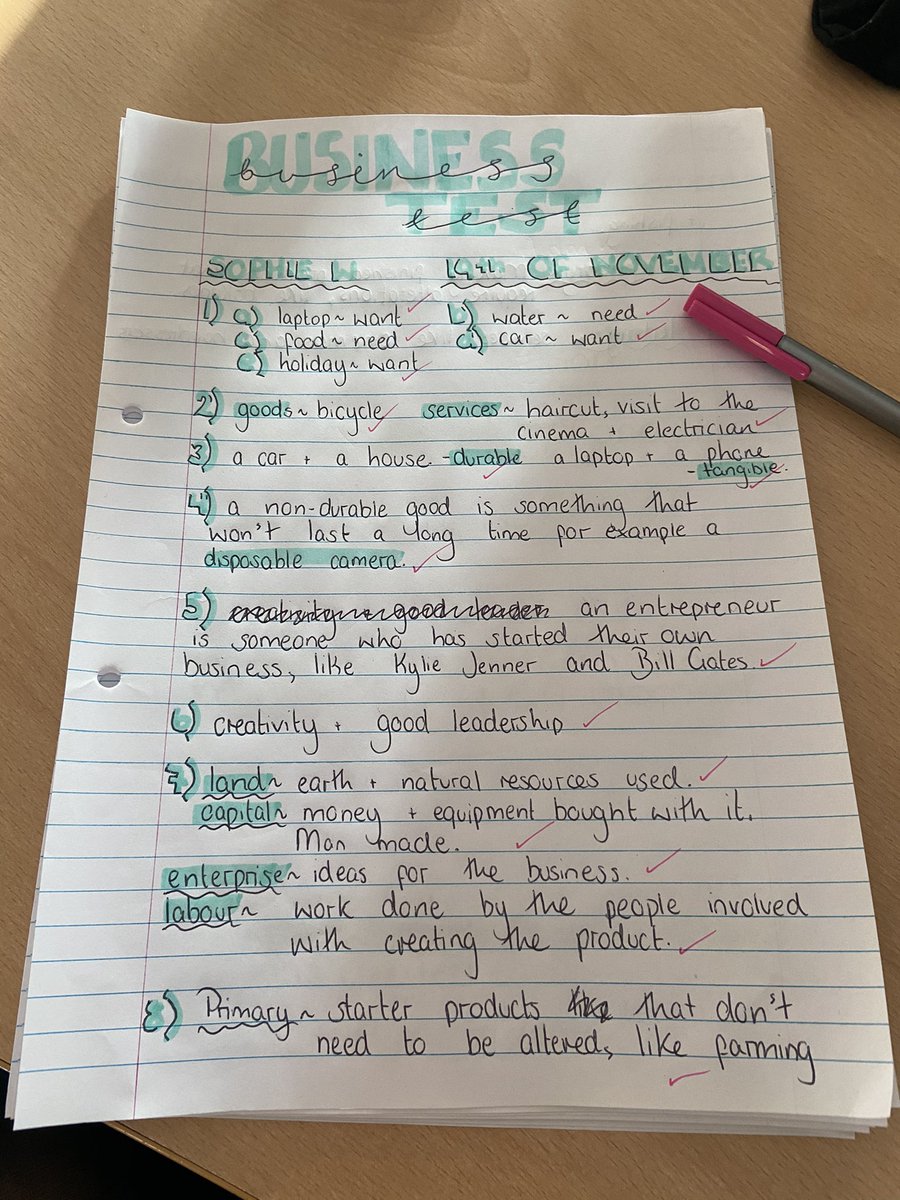 BUSINESS
business
TEST
test
SOPHIE W 19th OF NOVEMBER
1) a) laptop ~ want b) water ~ need
c) food ~ need d) car ~ want
e) holiday ~ want
2) goods ~ bicycle services ~ haircut, visit to the
cinema + electrician
3) a car + a house. - durable a laptop + a phone
- tangible.
4) a non-durable good is something that
won't last a long time for example a
disposable camera.
5) creativity good leader an entrepreneur
is someone who has started their own
business, like Kylie Jenner and Bill Gates.
6) creativity + good leadership
7) land ~ earth + natural resources used.
capital ~ money + equipment bought with it.
Man made.
enterprise ~ ideas for the business.
labour ~ work done by the people involved
with creating the product.
8) Primary ~ starter products that don't
need to be altered, like farming